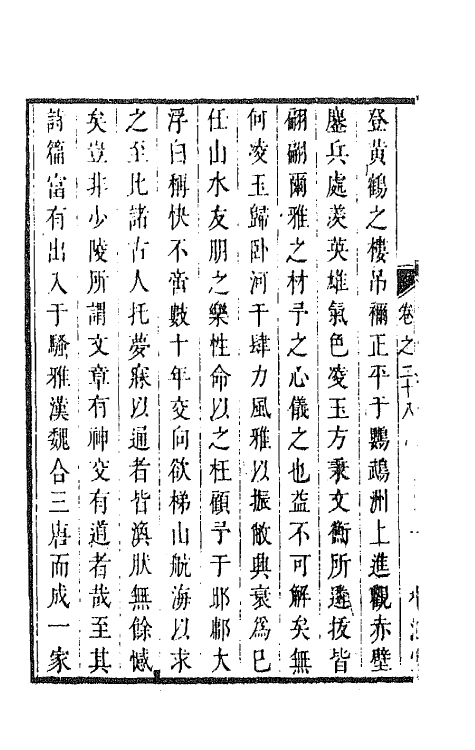 卷之二十八
登黃鶴之樓吊禰正平于鸚鵡洲上進觀赤壁
鏖兵處羨英雄氣色凌玉方秉文衡所遴拔皆
翩翩爾雅之材予之心儀之也益不可解矣無
何凌玉歸卧河干肆力風雅以振敝興衰為己
任山水友朋之樂性命以之枉顧予于邯鄲大
浮白稱快不啻數十年交向欲梯山航海以求
之至比諸古人托夢寐以通者皆渙狀無餘憾
矣豈非少陵所謂文章有神交有道者哉至其
詩篇富有出入于騷雅漢魏合三唐而成一家